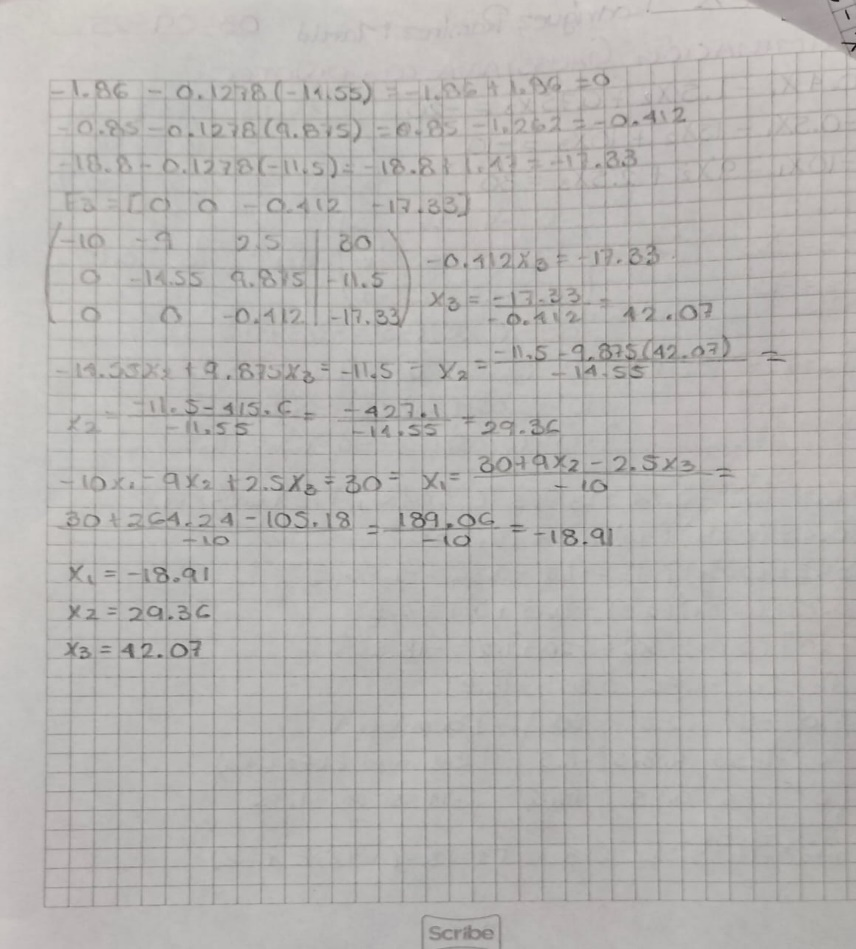 -1.86 - 0.1278(-14.55) = -1.86 + 1.86 = 0
-0.85 - 0.1278(9.875) = 0.85 - 1.262 = -0.412
-18.8 - 0.1278(-11.5) = -18.8 + 1.47 = -17.33
F3 = [0 0 -0.412 -17.33]
-10 -9 2.5 | 30
0 -14.55 9.875 | -11.5
0 0 -0.412 | -17.33
-0.412x3 = -17.33
x3 = -17.33 / -0.412 = 42.07
-14.55x2 + 9.875x3 = -11.5 = x2 = -11.5 - 9.875(42.07) / -14.55 =
x2 = -11.5 - 415.6 / -11.55 = -427.1 / -14.55 = 29.36
-10x1 - 9x2 + 2.5x3 = 30 = x1 = 30 + 9x2 - 2.5x3 / -10 =
30 + 264.24 - 105.18 / -10 = 189.06 / -10 = -18.91
x1 = -18.91
x2 = 29.36
x3 = 42.07
Scribe